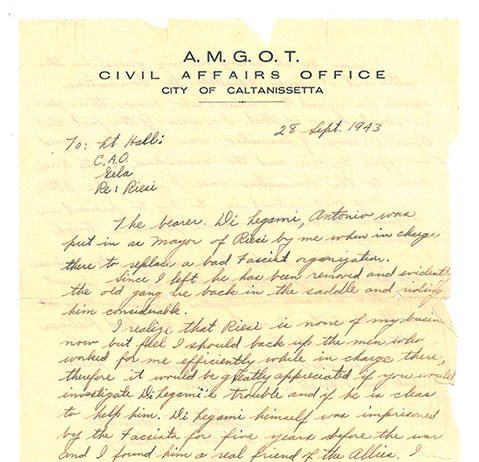 A. M. G. O. T.
CIVIL AFFAIRS OFFICE
CITY OF CALTANISSETTA
28 Sept. 1943
To: Lt Hall:
C.A.O.
Gela
Re: Riesi
The bearer. Di Legami, Antonio was
put in as Mayor of Riesi by me when in charge
there to replace a bad Fascist organization.
Since I left he has been removed and evident
the old gang are back in the saddle and riding
him considerable.
I realize that Riesi is none of my busin
now but feel I should back up the men who
worked for me efficiently while in charge there,
therefore it would be greatly appreciated if you would
investigate Di Legami's trouble and if he is clear
to help him. Di Legami himself was imprisoned
by the Fascists for five years before the war
and I found him a real friend of the Allies. I